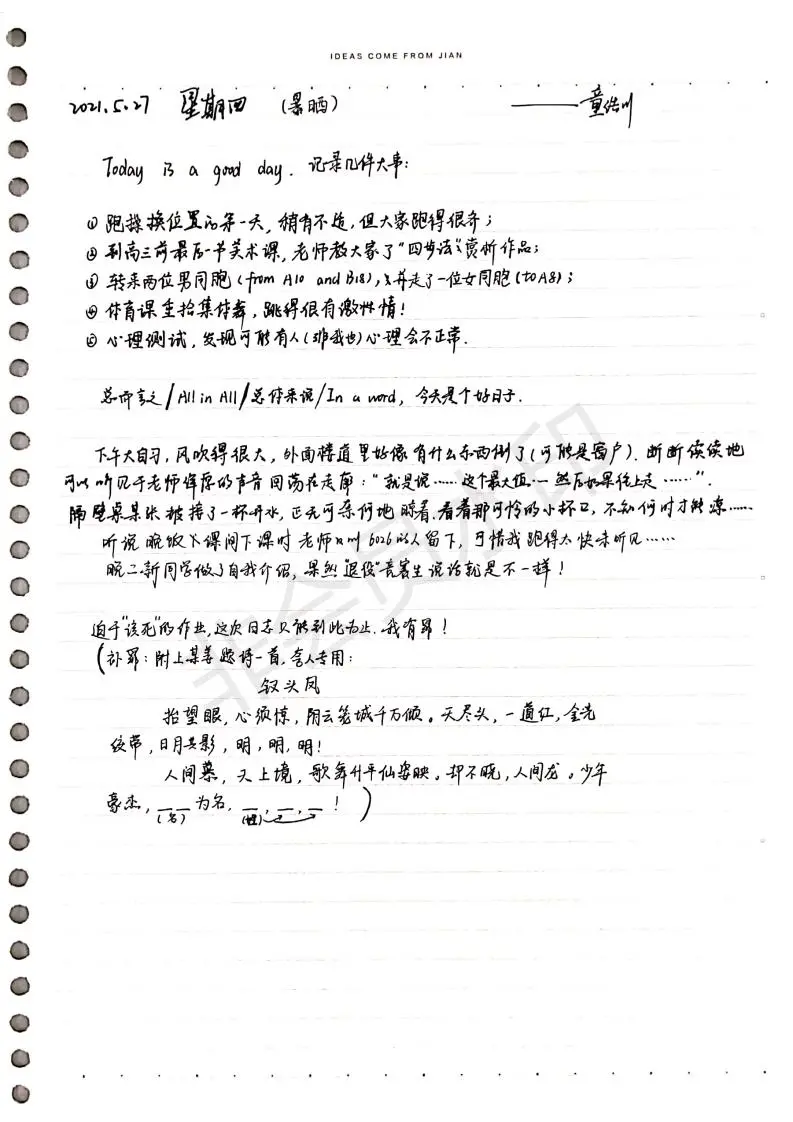 IDEAS COME FROM JIAN
2021.5.27 星期四 (暴晒) ——童皓川
Today is a good day. 记录几件大事:
① 跑操换位置的第一天, 稍有不适, 但大家跑得很齐;
② 到高三前最后一节美术课, 老师教大家了“四步法”赏析作品;
③ 转来两位男同胞(from A10 and B18), 并走了一位女同胞(to A8);
④ 体育课重拾集体舞, 跳得很有激情!
⑤ 心理测试, 发现可能有人(非我也)心理会不正常.
总而言之/All in All/总体来说/In a word, 今天是个好日子.
下午大自习, 风吹得很大, 外面楼道里好像有什么东西倒了(可能是窗户). 断断续续地
可以听见于老师浑厚的声音回荡在走廊: “就是说……这个最大值…然后如果往上走……”.
隔壁桌某张被接了一杯开水, 正无可奈何地晾着. 看着那可怜的小杯口, 不知何时才能凉……
听说晚饭课间下课时老师叫602的人留下, 可惜我跑得太快未听见……
晚二新同学做了自我介绍, 果然“退役”竞赛生说话就是不一样!
迫于“该死”的作业, 这次日志只能到此为止. 我有罪!
(补罪: 附上某姜题诗一首, 舍人专用:
钗头凤
抬望眼, 心须惊, 阴云笼城千万倾。天尽头, 一道红, 金光
绞带, 日月共影, 明, 明, 明!
人间暮, 天上境, 歌舞升平仙姿映。却不晓, 人间龙。少年
豪杰, __为名, _, _, _!)
(名) (姓)
非会员水印